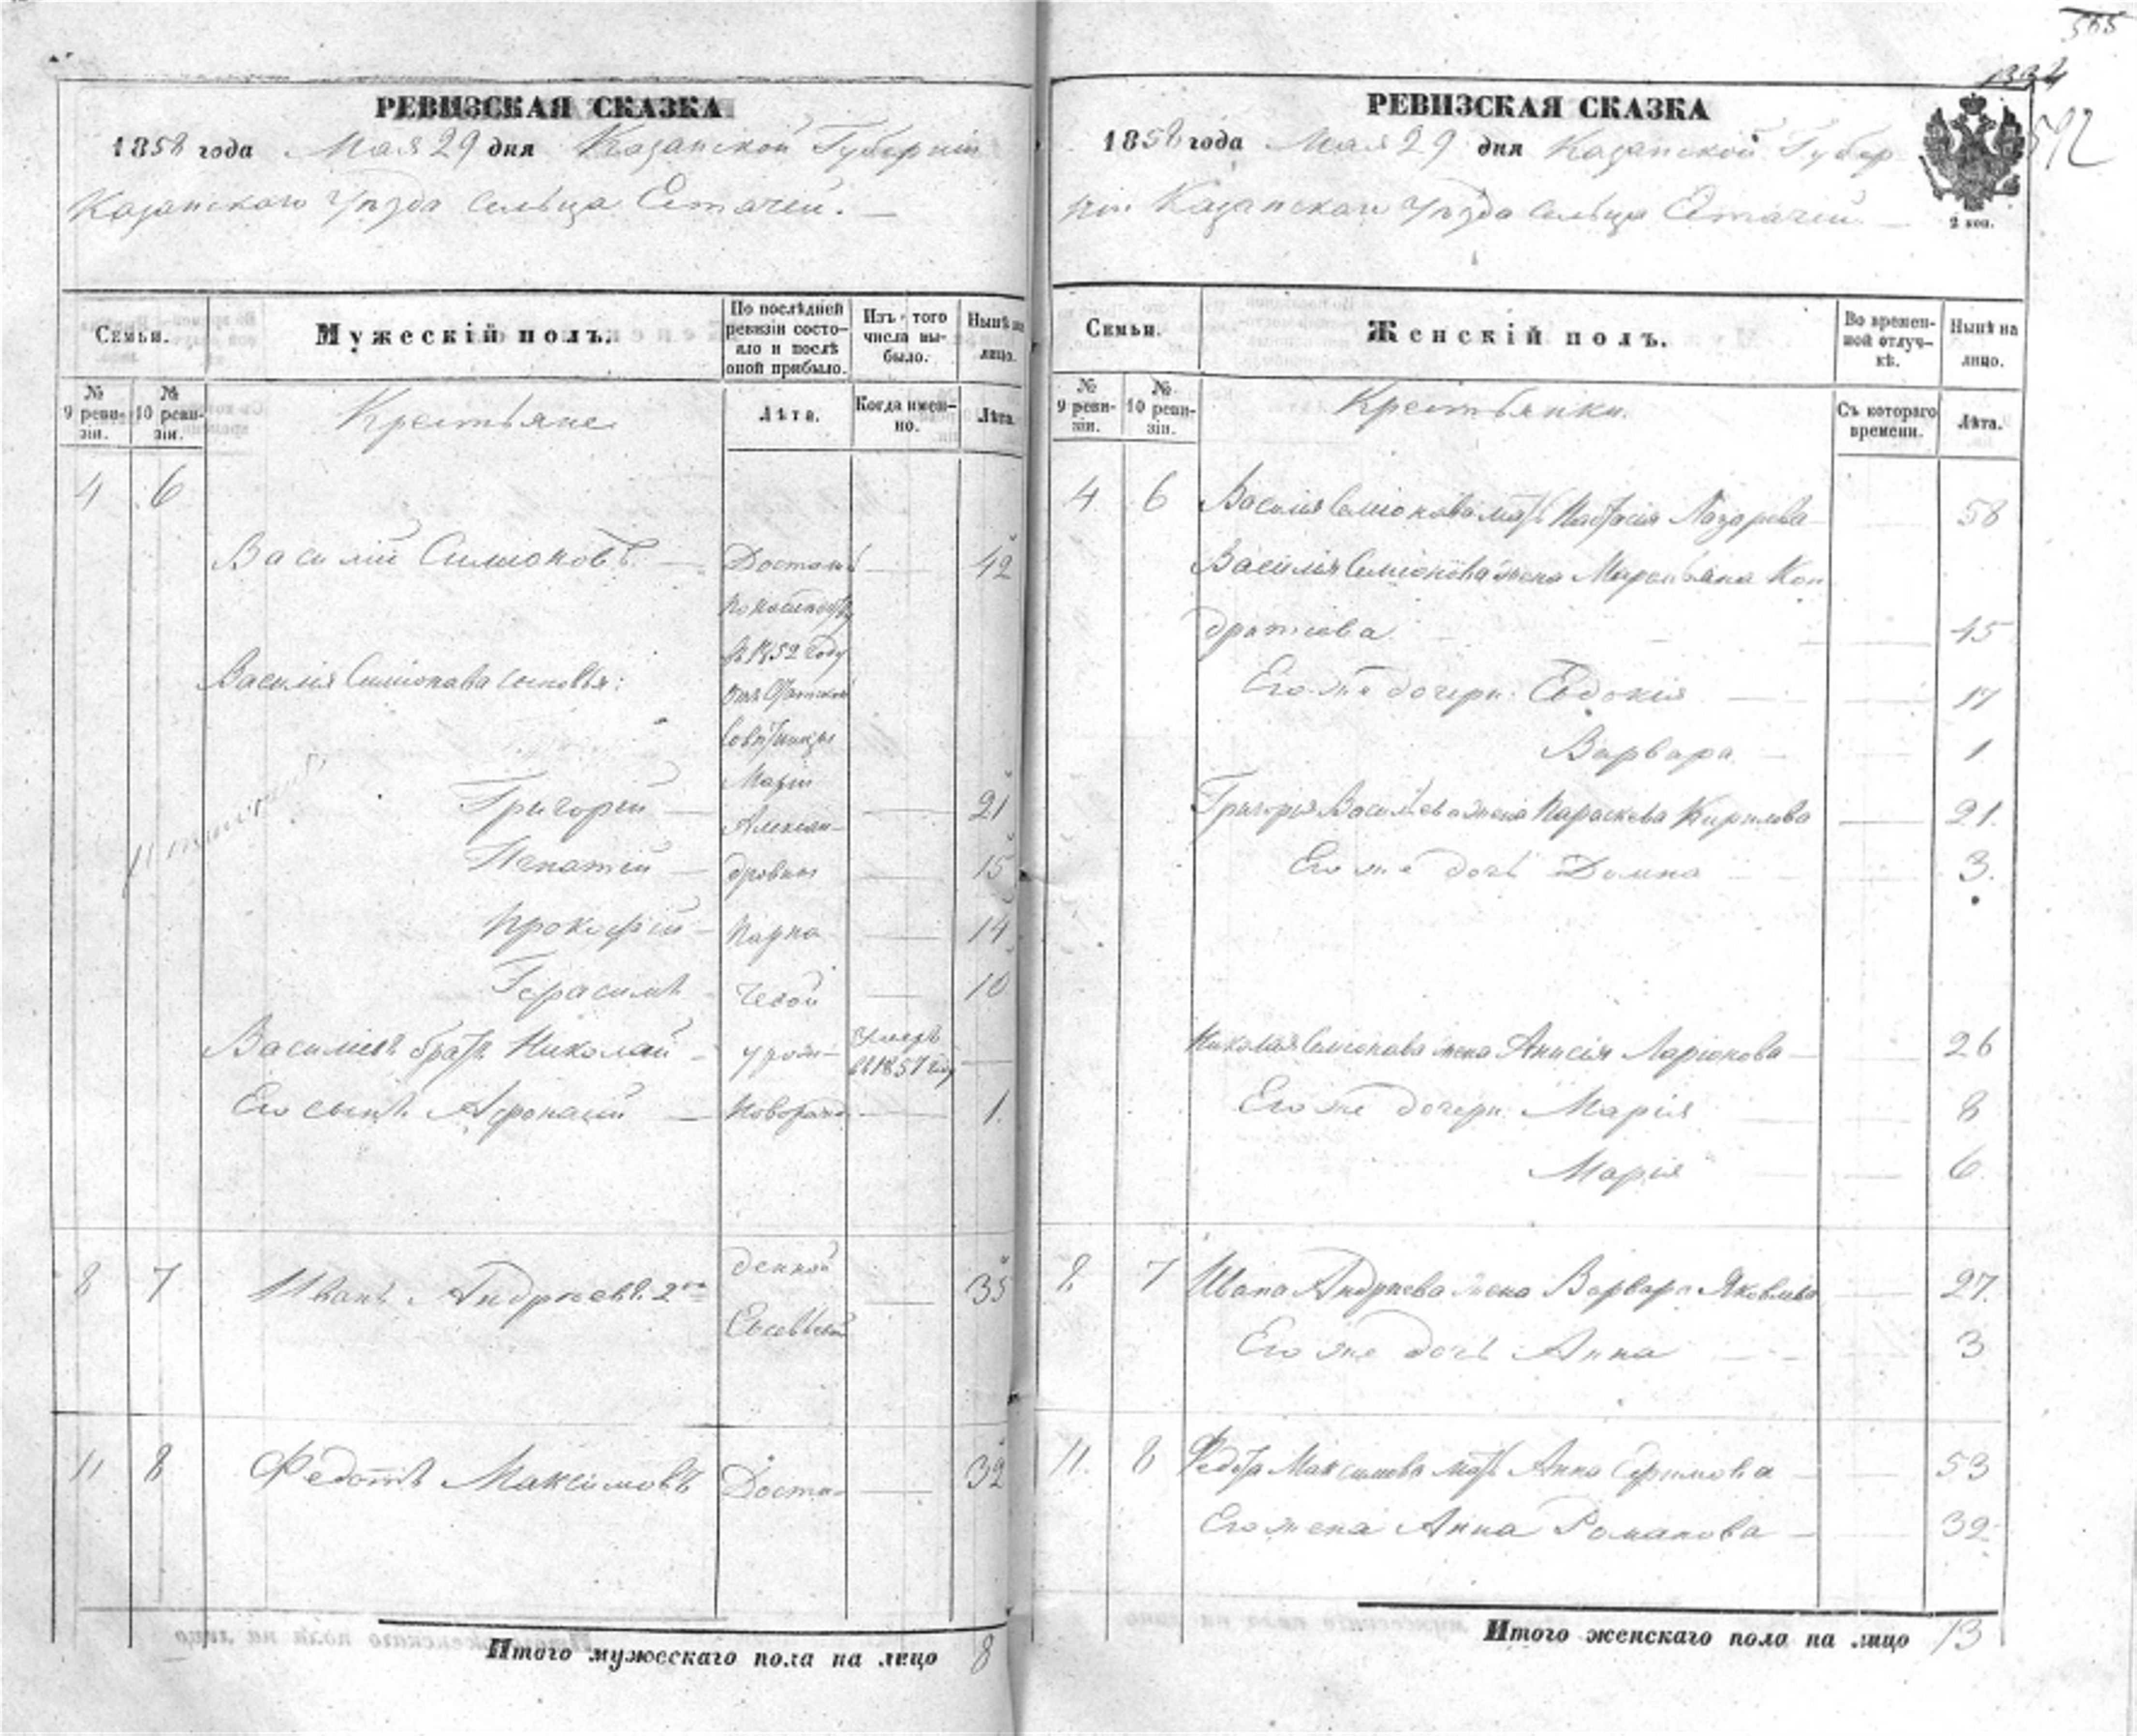 565
1334
592
РЕВИЗСКАЯ СКАЗКА
1858 года Мая 29 дня Казанской Губерніи
Казанскаго Уѣзда сельца Етачей. —
Семьи.
Мужескій полъ.
По послѣдней ревизіи состояло и послѣ оной прибыло.
Изъ того числа выбыло.
Нынѣ на лицо.
№ 9 ревизіи.
№ 10 ревизіи.
Крестьяне
Лѣта.
Когда именно.
Лѣта.
4 6
Василій Симіоновъ — Достал — 42
въ 1852 году
Василія Симіонова сыновья:
Маріи
Григорій — Алексан- — 21
Ипатій — дровны — 15
Прокофій — — 14
Герасимъ — 10
Василіевъ братъ Николай — умеръ въ 1857 году —
Его сынъ Афонасій — Новорожд. — 1.
8 7 Иванъ Андреевъ 2й — 35
11 8 Федотъ Максимовъ Доста- — 32
Итого мужескаго пола на лицо 8
РЕВИЗСКАЯ СКАЗКА
1858 года Мая 29 дня Казанской Губер
ніи Казанскаго Уѣзда сельца Етачей —
2 коп.
Семьи.
Женскій полъ.
Во временной отлучкѣ.
Нынѣ на лицо.
№ 9 ревизіи.
№ 10 ревизіи.
Крестьянки.
Съ котораго времени.
Лѣта.
4 6 Василія Симіонова мать Настасія Лазарева — 58
Василія Симіонова жена Маремьяна Кон
дратьева — 45
Его же дочери: Евдокія — 17
Варвара — 1
Григорія Васильева жена Параскева Кирилова — 21.
Его же дочь Домна — 3.
Николая Симіонова жена Анисія Ларіонова — 26
Его же дочери Марія — 8
Марія — 6
8 7 Ивана Андреева жена Варвара Яковлева — 27.
Его же дочь Анна — 3
11. 8 Федота Максимова мать Анна Ефимова — 53
Его жена Анна Романова — 32
Итого женскаго пола на лицо 13